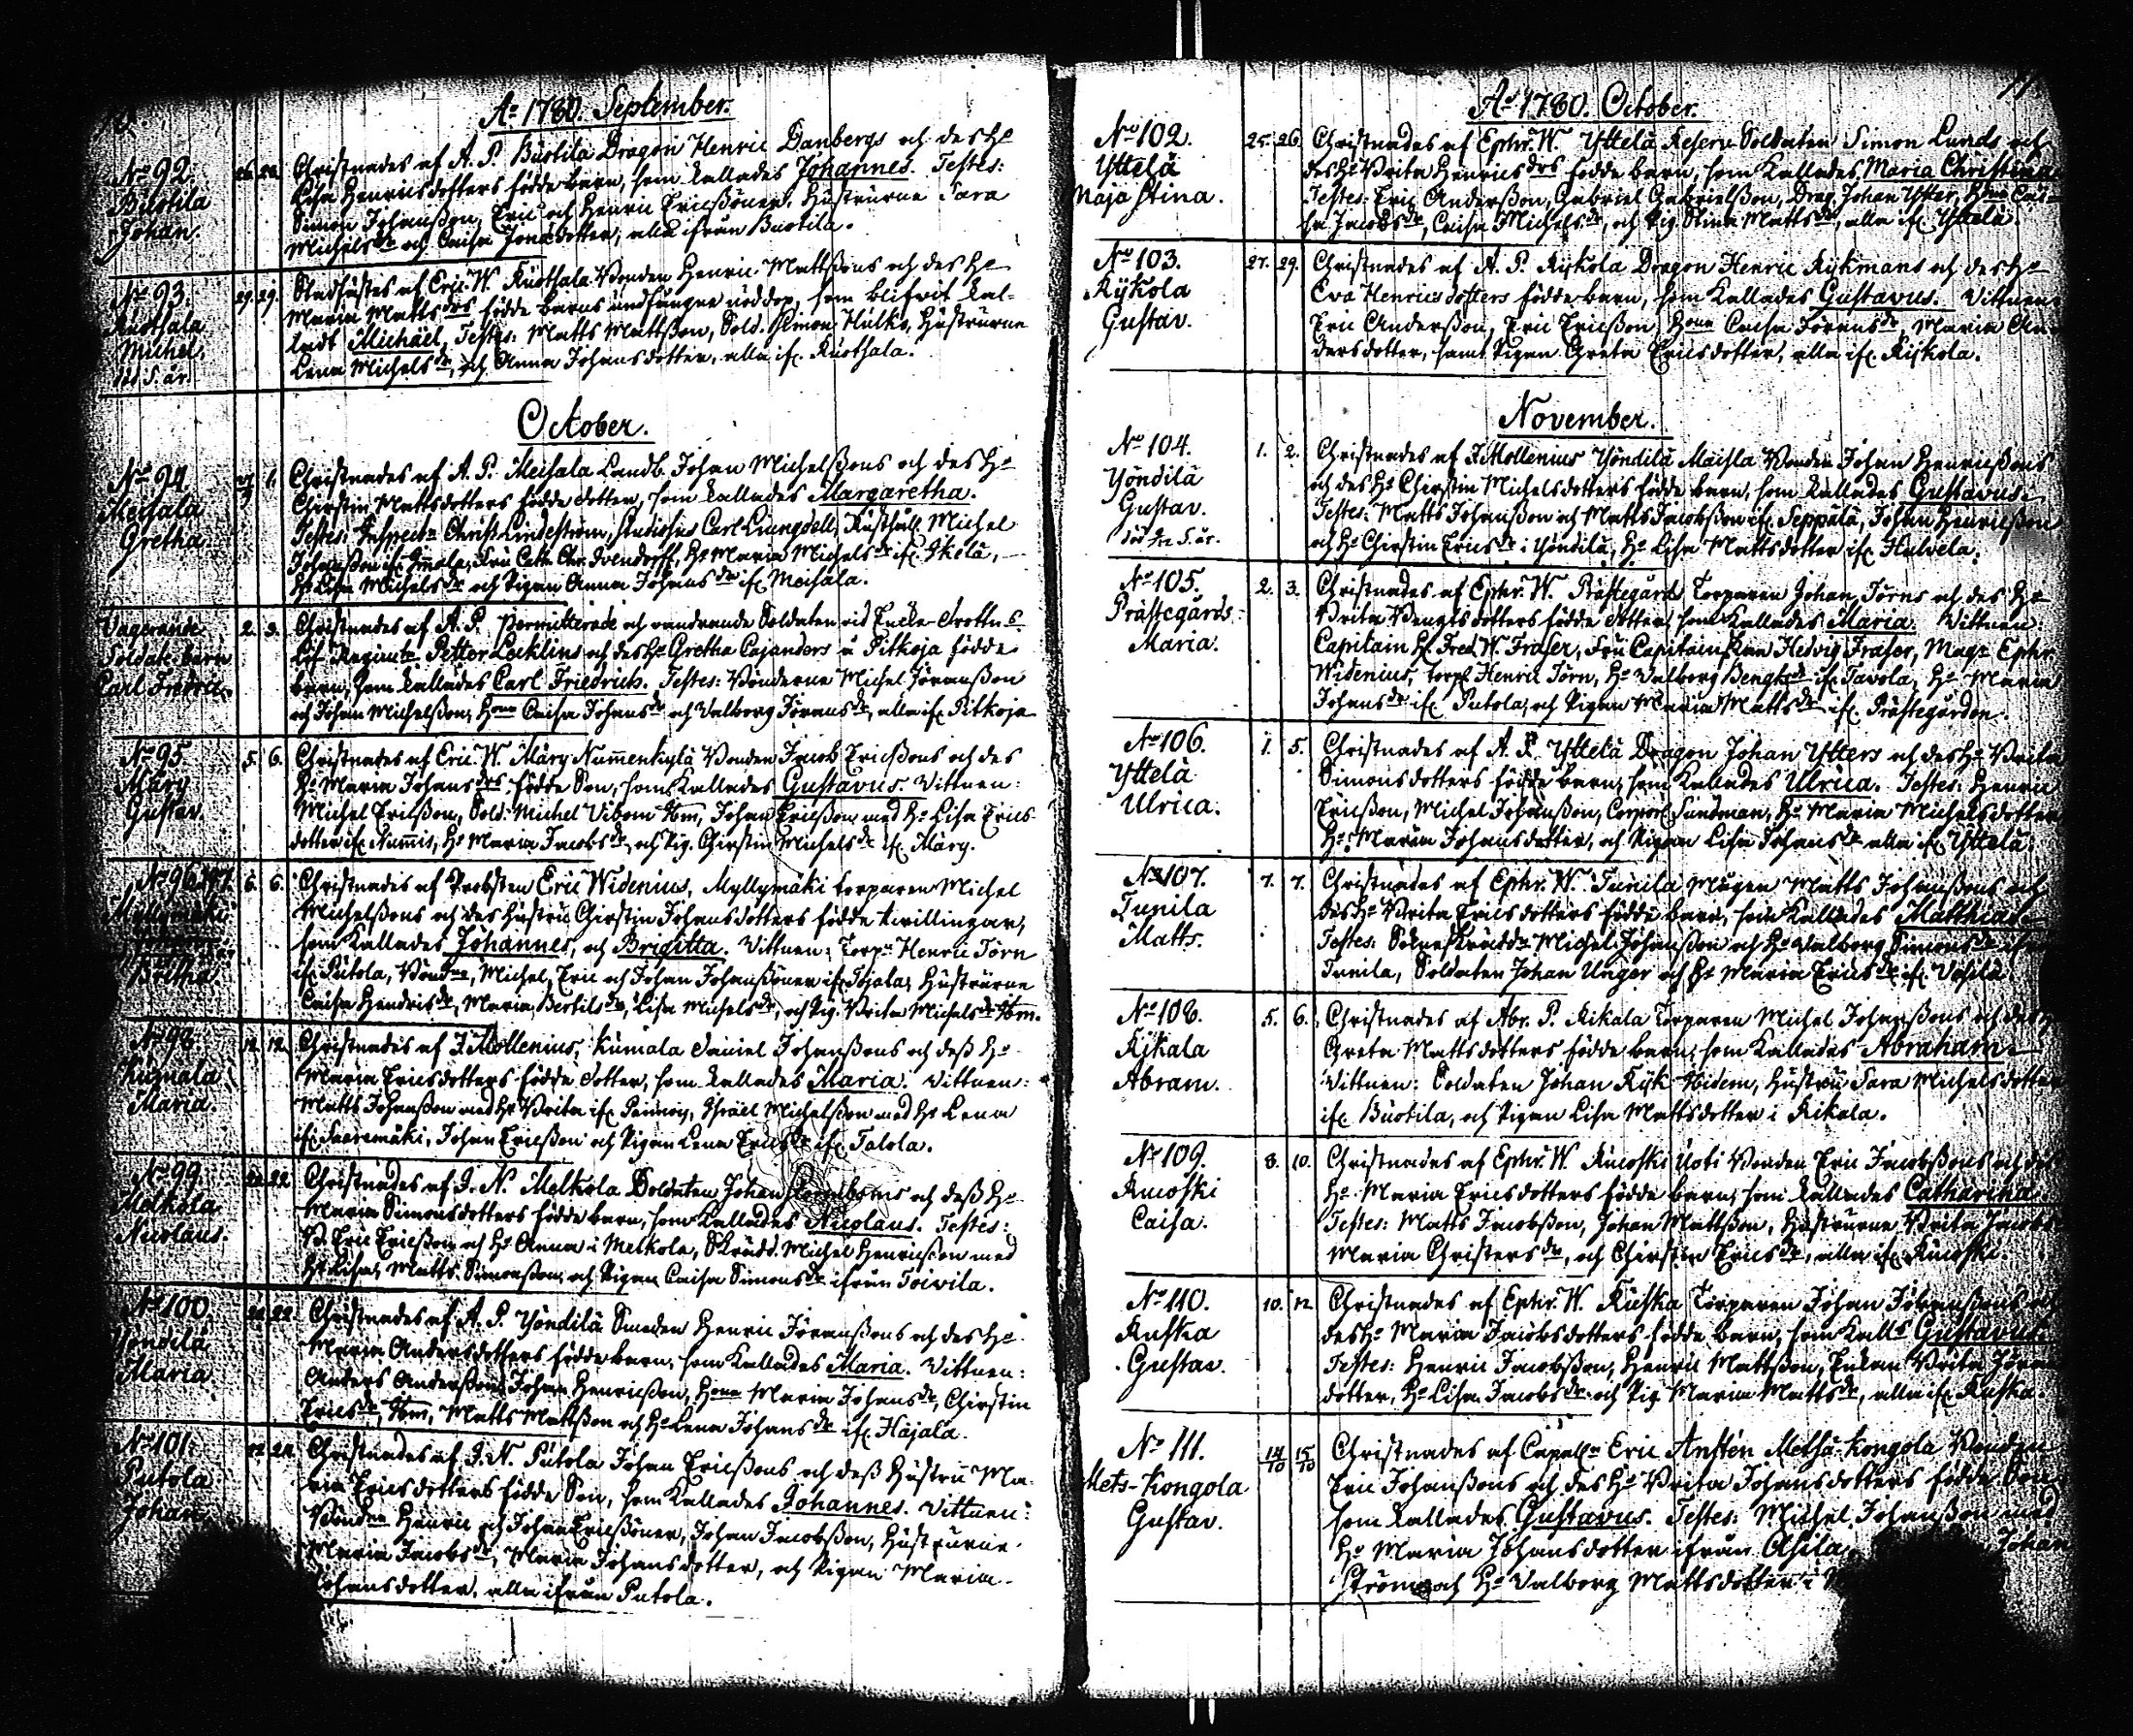 Ao 1780. September.
No 92.
Buotila
Johan.
26. 28. Christnades af A. P. Buotila Dragon Henric Danbergs och des He
Lisa Henricsdotters födde barn, som kallades Johannes. Testes:
Simon Johansson, Eric och Henric Ericssöner, Hustrurne Sara
Michelsdr och Caisa Jonædotter, alla ifrån Buotila.
No 93.
Kuothala
Michel.
död 5. år.
29. 29. Stadfästes af Eric. W. Kuothala Bonden Henric Mattssons och des He
Maria Matts drs födde barns undfångne nöddop, som blifwit kal-
ladt Michäel. Testes: Matts Mattsson, Sold. Simon Hulko, Hustrurne
Lena Michelsdr, och Anna Johansdotter, alla if. Kuothala.
October.
No 94.
Meisala
Gretha.
27/9 1. Christnades af A. P. Meisala Landb. Johan Michelssons och des He
Chirstin Mattsdotters födde dotter, som kallades Margaretha.
Testes: Inspect. Christ. Lindeström, Studiosus Carl Liungdell, Rusthåll. Michel
Johansson if. Immola, Fru Cath. Chr. Ivendorff, He Maria Michelsdr if. Ikola,
He Lisa Michelsdr och Pigan Anna Johansdr if. Meisala.
Vagerande
Soldate-barn
Carl Fredric.
2. 3. Christnades af A. P. Permitterade och vandrande Soldaten vid Encke-Drottn.s
Lif Regimte Petter Lecklins och des He Gretha Cajanders i Pitkoja födde
barn, som kallades Carl Friedrich. Testes: Bönderne Michel Jöransson
och Johan Michelsson, Hona Caisa Johansdr och Valborg Jöransdr, alla if. Pitkoja
No 95.
Märy
Gustav.
5. 6. Christnades af Eric. W. Märy Nummenkylä Bonden Jacob Ericssons och des
He Maria Johansdrs födde Son, som kallades Gustavus. Vittnen:
Michel Ericsson, Sold. Michel Vibom Ibm, Johan Ericsson med He Lisa Erics-
dotter if. Nummis, He Maria Jacobsdr, och Pig. Chirstin Michelsdr if. Märy.
No 96. 97.
Myllymäki
Britha.
6. 6. Christnades af Probsten Eric Widenius, Myllymäki torparen Michel
Michelssons och des hustru Chirstin Johansdotters födde twillingar,
som kallades Johannes, och Brigitta. Vittnen: Torpn Henric Törn
if. Putola, Böndne, Michel, Eric och Johan Johanssöner if. Tojala; Hustrurne
Caisa Hendricsdr, Maria Bertilsdr, Lisa Michelsdr, och Pig. Brita Michelsdr Ibm.
No 98.
Kumala
Maria.
12. 12. Christnades af J. Mollenius, Kumala Daniel Johanssons och dess He
Maria Ericsdotters födde dotter, som kallades Maria. Vittnen:
Matts Johansson med He Brita if. Peinnoj, Israel Michelsson med He Lena
if. Saaremäki, Johan Ericsson och Pigan Lena Ericsdr if. Talola.
No 99.
Melkola
Nicolaus.
22. 22. Christnades af J. N. Melkola Soldaten Johan och dess He
Maria Simonsdotters födde barn, som kallades Nicolaus. Testes:
B. Eric Ericsson och He Anna i Melkola, Skrädd. Michel Henricsson med
He Lisa, Matts Simonsson, och Pigan Caisa Simonsdr ifrån Toivila.
No 100.
Yöndilä
Maria.
22. 22. Christnades af A. P. Yöndilä Smeden Henric Jöranssons och des He
Maria Andersdotters födde barn, som kallades Maria. Vittnen:
Anders Andersson, Johan Henricsson, Hona Maria Johansdr, Chirstin
Ericsdr, Ibm, Matts Mattsson och He Lena Johansdr if. Hajala.
No 101.
Putola
Johan.
22. 24. Christnades af J. N. Putola Johan Ericssons och dess Hustru Ma-
ria Ericsdotters födde Son, som kallades Johannes. Vittnen:
Böndne Henric och Johan Ericssöner, Johan Jacobsson, Hustrurne
Maria Jacobsdr, Maria Johansdotter, och Pigan Maria
Johansdotter, alla ifrån Putola.
Ao 1780. October.
No 102.
Yttelä
Maja Stina.
25. 26. Christnades af Ephr. W. Yttelä Reserv Soldaten Simon Lunds och
des He Brita Henricsdrs födde barn, som kallades Maria Christina.
Testes: Eric Andersson, Gabriel Gabrielsson, Drag. Johan Ytter, Hona Cai-
sa Jacobsdr, Caisa Michelsdr, och Pig. Stina Mattsdr, alla if. Yttelä.
No 103.
Rykola
Gustav.
27. 29. Christnades af A. P. Rykola Dragon Henric Rykmans och des He
Eva Henricsdotters födde barn, som kallades Gustavus. Vittnen:
Eric Andersson, Eric Ericsson, Hona Caisa Jöransdr, Maria An-
dersdotter, samt Pigan Greta Ericsdotter, alla if. Rykola.
November.
No 104.
Yöndilä
Gustav.
1. 2. Christnades af J. Mollenius Yöndilä Maisla Bonden Johan Henricssons
och des He Chirstin Michelsdotters födde barn, som kallades Gustavus.
Testes: Matts Johansson och Matts Jacobsson if. Seppälä, Johan Henricsson
och He Chirstin Ericsdr i Yöndilä, He Lisa Mattsdotter if. Hulvela.
No 105.
Prästegårds-
Maria.
2. 3. Christnades af Ephr. W. Prästegårds Torparen Johan Törns och des He
Brita Bengtsdotters födde dotter, som kallades Maria. Vittnen:
Capitain H. Fred. W. Fraser, Fru Capitainskan Hedvig Fraser, Magr Ephr.
Widenius, torp. Henric Törn, He Valborg Bengtsdr if. Tavola, He Maria
Johansdr if. Putola, och Pigan Maria Mattsdr if. Prästegården.
No 106.
Yttelä
Ulrica.
1. 5. Christnades af A. P. Yttelä Dragon Johan Ytters och des He Brita
Simonsdotters födde barn, som kallades Ulrica. Testes: Henric
Ericsson, Michel Johansson, Corporl Sundman, He Maria Michelsdotter
He Maria Johansdotter, och Pigan Lisa Johansdr alla if. Yttelä.
No 107.
Tunila
Matts.
7. 7. Christnades af Ephr. W. Tunila Mågen Matts Johanssons och
des He Brita Ericsdotters födde barn, som kallades Matthias.
Testes: Sokneskrädd. Michel Johansson och He Valborg Simonsdr if.
Tunila, Soldaten Johan Unger och He Maria Ericsdr if. Vosila.
No 108.
Rikala
Abram.
5. 6. Christnades af Abr. P. Rikala Torparen Michel Johanssons och des H.
Greta Mattsdotters födde barn, som kallades Abraham.
Vittnen: Soldaten Johan Ryk Ibidem, Hustru Sara Michelsdotter
if. Buotila, och Pigan Lisa Mattsdotter i Rikala.
No 109.
Ruoski
Caisa.
8. 10. Christnades af Ephr. W. Ruoski Uoti Bonden Eric Jacobssons och des
He Maria Ericsdotters födde barn, som kallades Catharina.
Testes: Matts Jacobsson, Johan Mattsson, Hustrurne Brita Jacobs
Maria Christersdr, och Chirstin Ericsdr, alla if. Ruoski.
No 110.
Ruska
Gustav.
10. 12. Christnades af Ephr. W. Ruska Torparen Johan Johanssons och
des He Maria Jacobsdotters födde barn, som kalls Gustavus.
Testes: Henric Jacobsson, Henric Mattsson, Enkan Brita Jöran
dotter, He Lisa Jacobsdr och Pig. Maria Mattsdr, alla if. Ruska.
No 111.
Mets-Kongola
Gustav.
14/10 15/10 Christnades af Capelln Eric Anstén Metsä-Kongola Bonden
Eric Johanssons och des He Brita Johansdotters födde Son,
som kallades Gustavus. Testes: Michel Johansson med
He Maria Johansdotter ifrån Asila, Johan
Ström och He Valborg Mattsdotter i